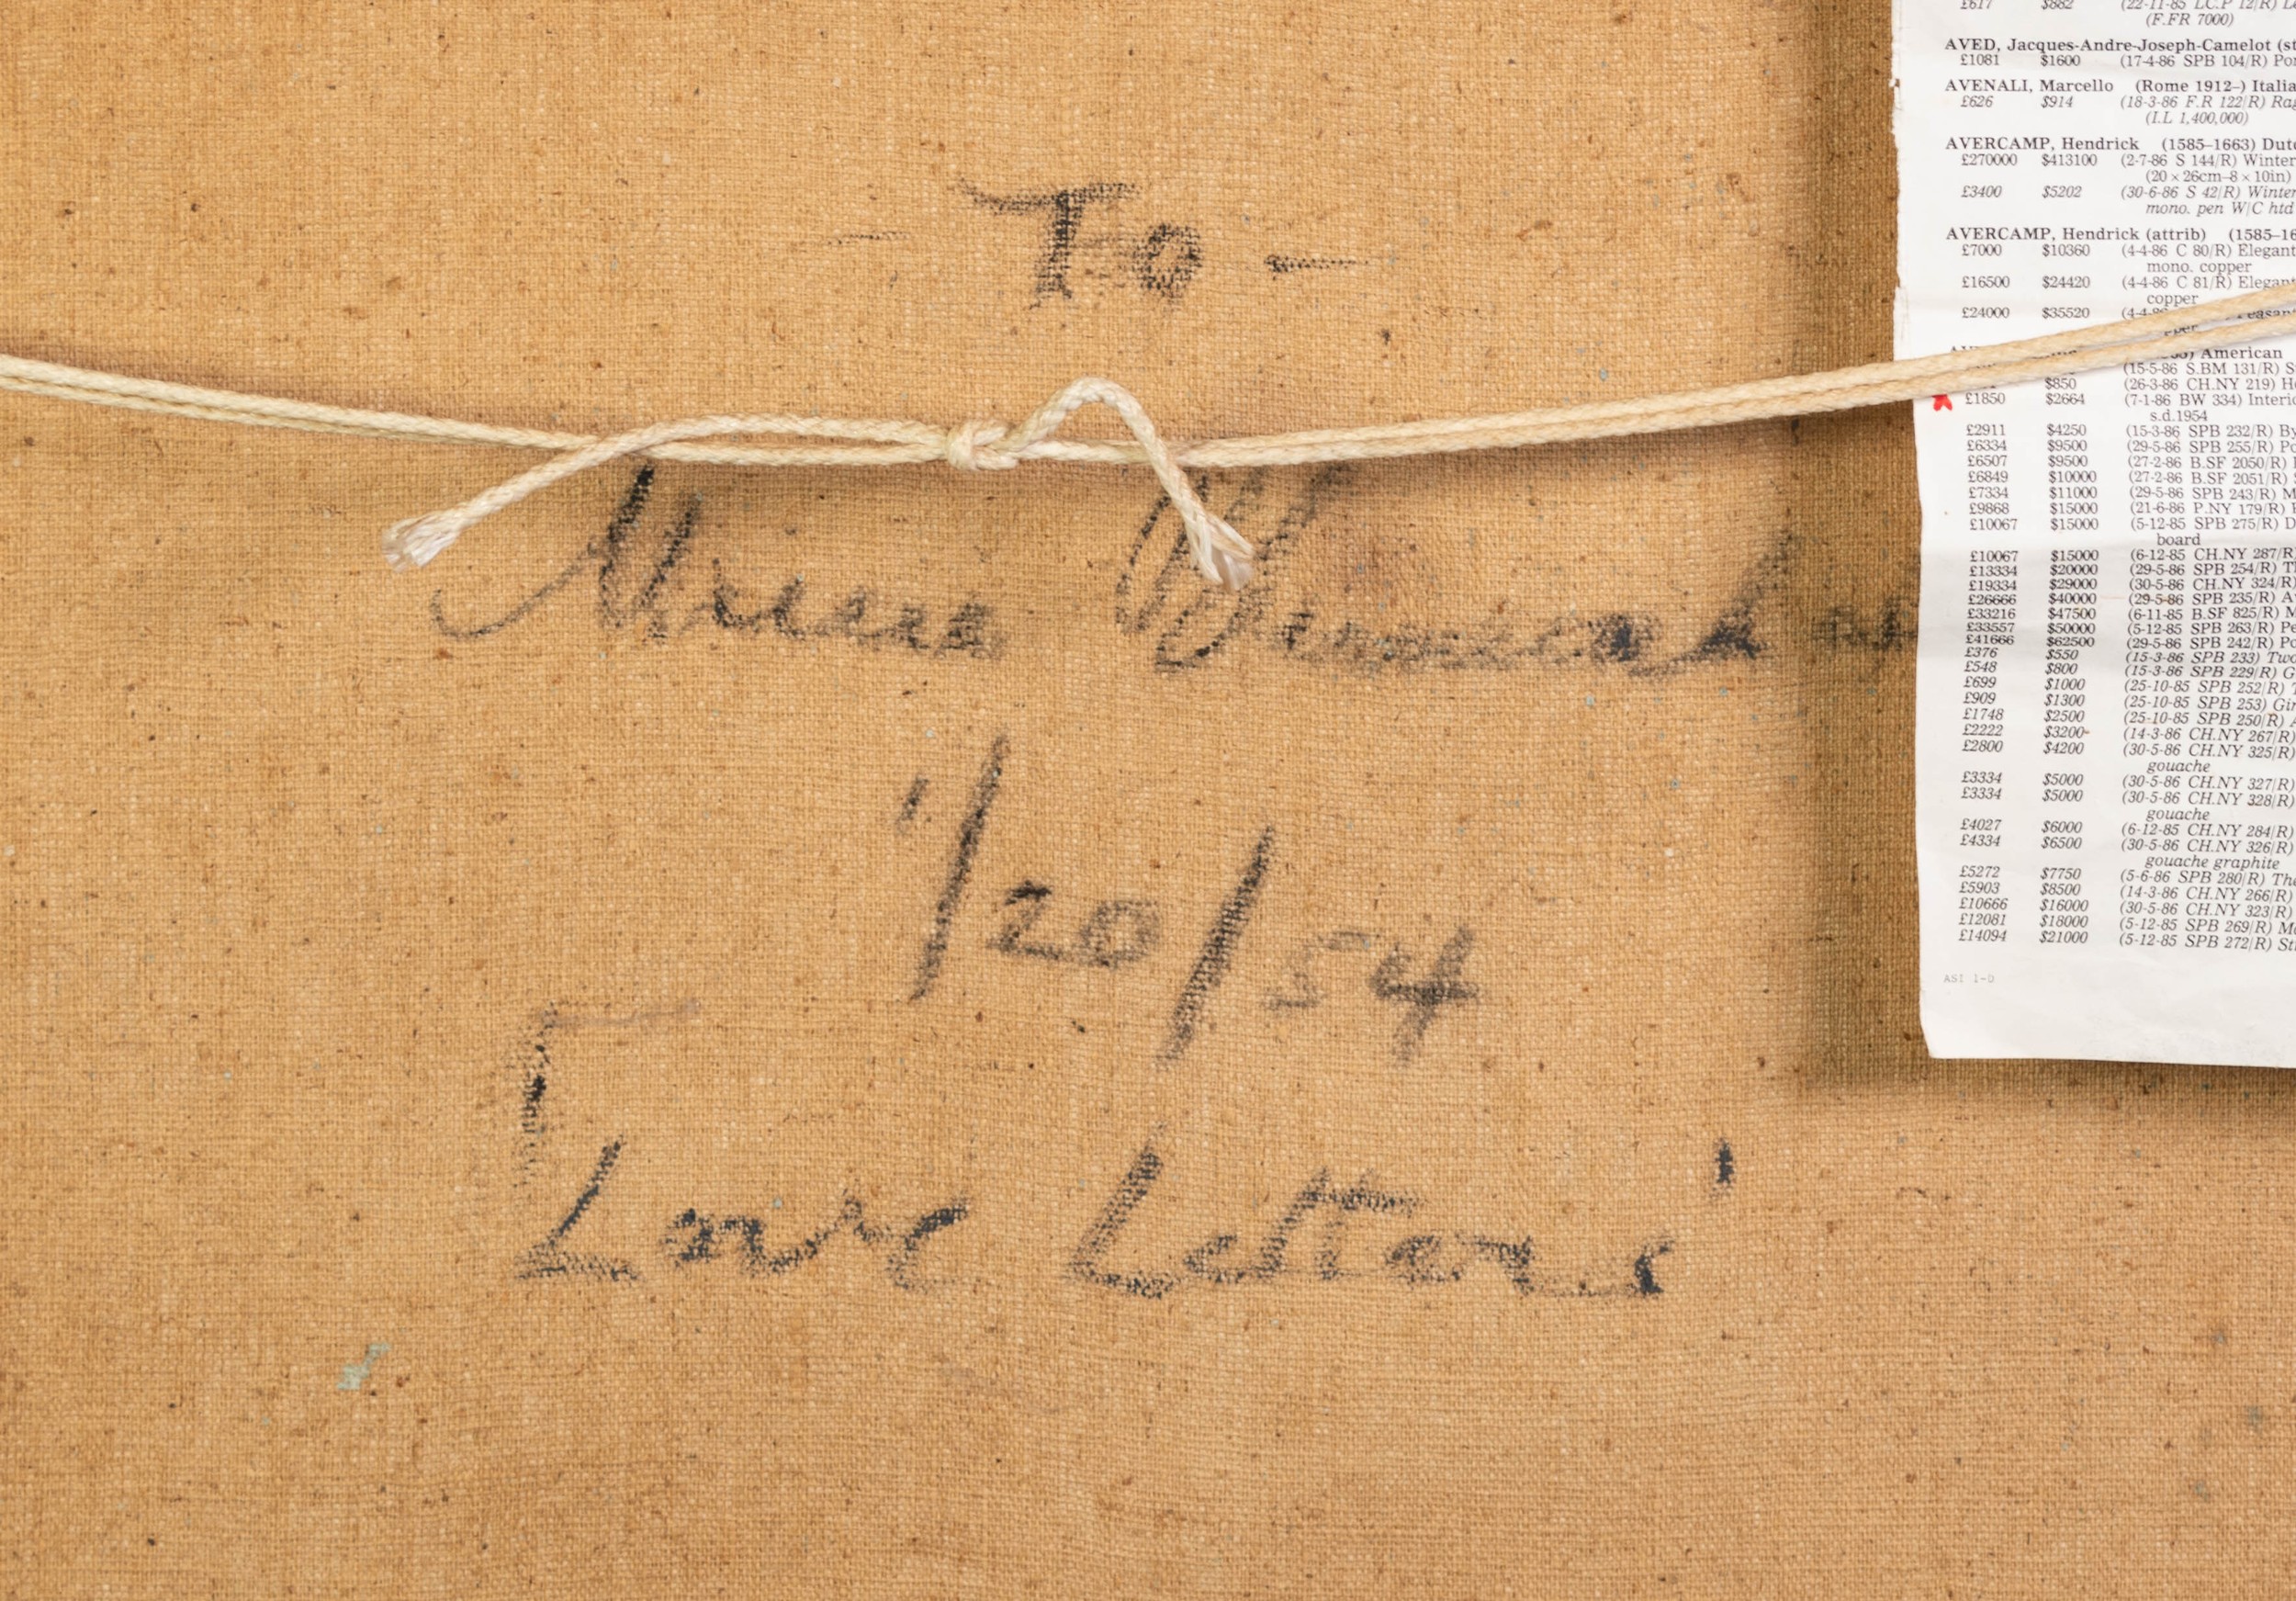 To -
1/20/54
Love Letters'
£617 $882 (22-11-85 LC.P 12/R)
(F.FR 7000)
AVED, Jacques-Andre-Joseph-Camelot
£1081 $1600 (17-4-86 SPB 104/R)
AVENALI, Marcello (Rome 1912–)
£626 $914 (18-3-86 F.R 122/R)
(I.L 1,400,000)
AVERCAMP, Hendrick (1585–1663)
£270000 $413100 (2-7-86 S 144/R) Winter
(20 × 26cm–8 × 10in)
£3400 $5202 (30-6-86 S 42/R) Winter
mono. pen W/C htd
AVERCAMP, Hendrick (attrib)
£7000 $10360 (4-4-86 C 80/R) Elegant
mono. copper
£16500 $24420 (4-4-86 C 81/R) Elegant
copper
£24000 $35520
American
(15-5-86 S.BM 131/R)
$850 (26-3-86 CH.NY 219)
£1850 $2664 (7-1-86 BW 334)
s.d.1954
£2911 $4250 (15-3-86 SPB 232/R)
£6334 $9500 (29-5-86 SPB 255/R)
£6507 $9500 (27-2-86 B.SF 2050/R)
£6849 $10000 (27-2-86 B.SF 2051/R)
£7334 $11000 (29-5-86 SPB 243/R)
£9868 $15000 (21-6-86 P.NY 179/R)
£10067 $15000 (5-12-85 SPB 275/R)
board
£10067 $15000 (6-12-85 CH.NY 287/R)
£13334 $20000 (29-5-86 SPB 254/R)
£19334 $29000 (30-5-86 CH.NY 324/R)
£26666 $40000 (29-5-86 SPB 235/R)
£33216 $47500 (6-11-85 B.SF 825/R)
£33557 $50000 (5-12-85 SPB 263/R)
£41666 $62500 (29-5-86 SPB 242/R)
£376 $550 (15-3-86 SPB 233) Two
£548 $800 (15-3-86 SPB 229/R)
£699 $1000 (25-10-85 SPB 252/R)
£909 $1300 (25-10-85 SPB 253)
£1748 $2500 (25-10-85 SPB 250/R)
£2222 $3200 (14-3-86 CH.NY 267/R)
£2800 $4200 (30-5-86 CH.NY 325/R)
gouache
£3334 $5000 (30-5-86 CH.NY 327/R)
£3334 $5000 (30-5-86 CH.NY 328/R)
gouache
£4027 $6000 (6-12-85 CH.NY 284/R)
£4334 $6500 (30-5-86 CH.NY 326/R)
gouache graphite
£5272 $7750 (5-6-86 SPB 280/R)
£5903 $8500 (14-3-86 CH.NY 266/R)
£10666 $16000 (30-5-86 CH.NY 323/R)
£12081 $18000 (5-12-85 SPB 269/R)
£14094 $21000 (5-12-85 SPB 272/R)
ASI 1-D